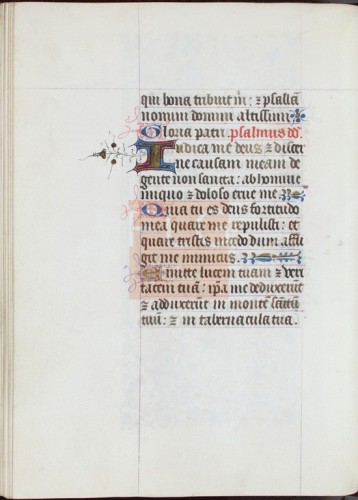 qui bona tribuit m̄: ⁊ psallā
nomini domini altissimi
Gloria patri. psalmus dd.
Iudica me deus ⁊ discer
ne causam meam de
gente non sancta: ab homine
iniquo ⁊ doloso erue me.
Quia tu es deus fortitudo
mea quare me repulisti: et
quare tristis incedo dum affli
git me inimicus.
Emitte lucem tuam ⁊ veri
tatem tuā: ip̄a me deduxerūt
⁊ adduxerūt in montē sāctū
tuū: ⁊ in tabernacula tua.